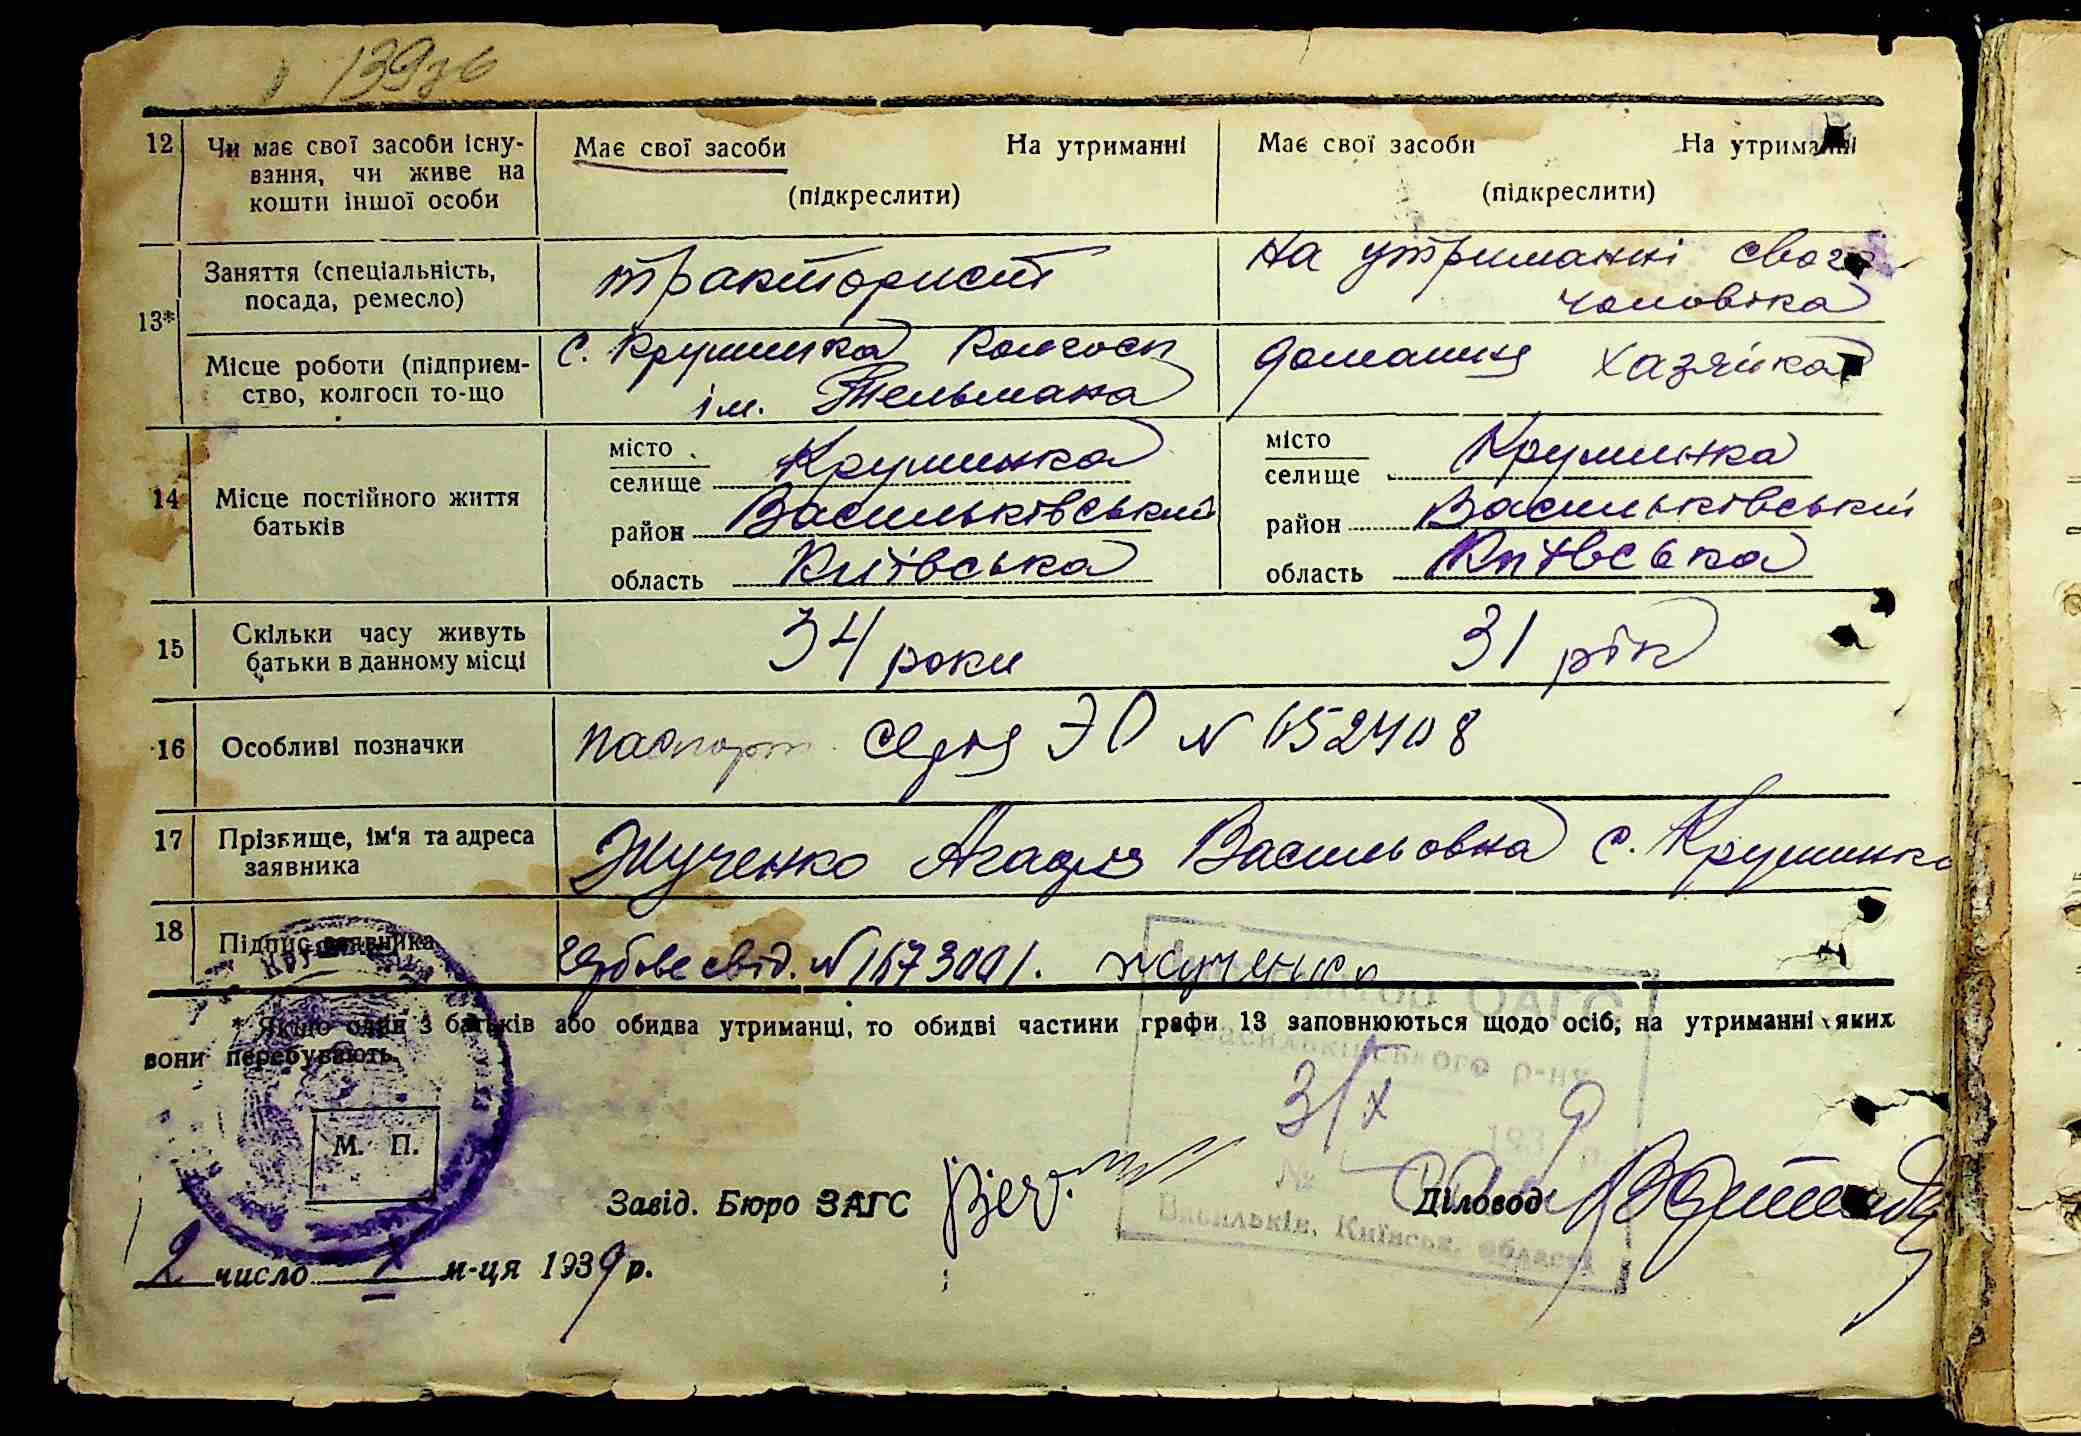 139зв
12 Чи має свої засоби існу-
вання, чи живе на
кошти іншої особи
Має свої засоби На утриманні
(підкреслити)
Має свої засоби На утриманні
(підкреслити)
13*
Заняття (спеціальність,
посада, ремесло)
тракторист
На утриманні свого
чоловіка
Місце роботи (підприєм-
ство, колгосп то-що
с. Крушинка Колгосп
ім. Тельмана
домашня хазяйка
14 Місце постійного життя
батьків
місто
селище Крушинка
район Васильківський
область Київська
місто
селище Крушинка
район Васильківський
область Київська
15 Скільки часу живуть
батьки в данному місці
34 роки
31 рік
16 Особливі позначки
паспорт серія ЭО N 652408
17 Прізвище, ім'я та адреса
заявника
Жученко Агафія Васильовна с. Крушинка
18 Підпис заявника
гербове свід. N 1673001. жученко
* Якщо один з батьків або обидва утриманці, то обидві частини графи 13 заповнюються щодо осіб, на утриманні яких
вони перебувають.
ЗАГС
Васильківського р-ну
3/X 1939 р.
№
Васильків, Київськ. області
М. П.
Завід. Бюро ЗАГС
Діловод
2 число X м-ця 1939 р.